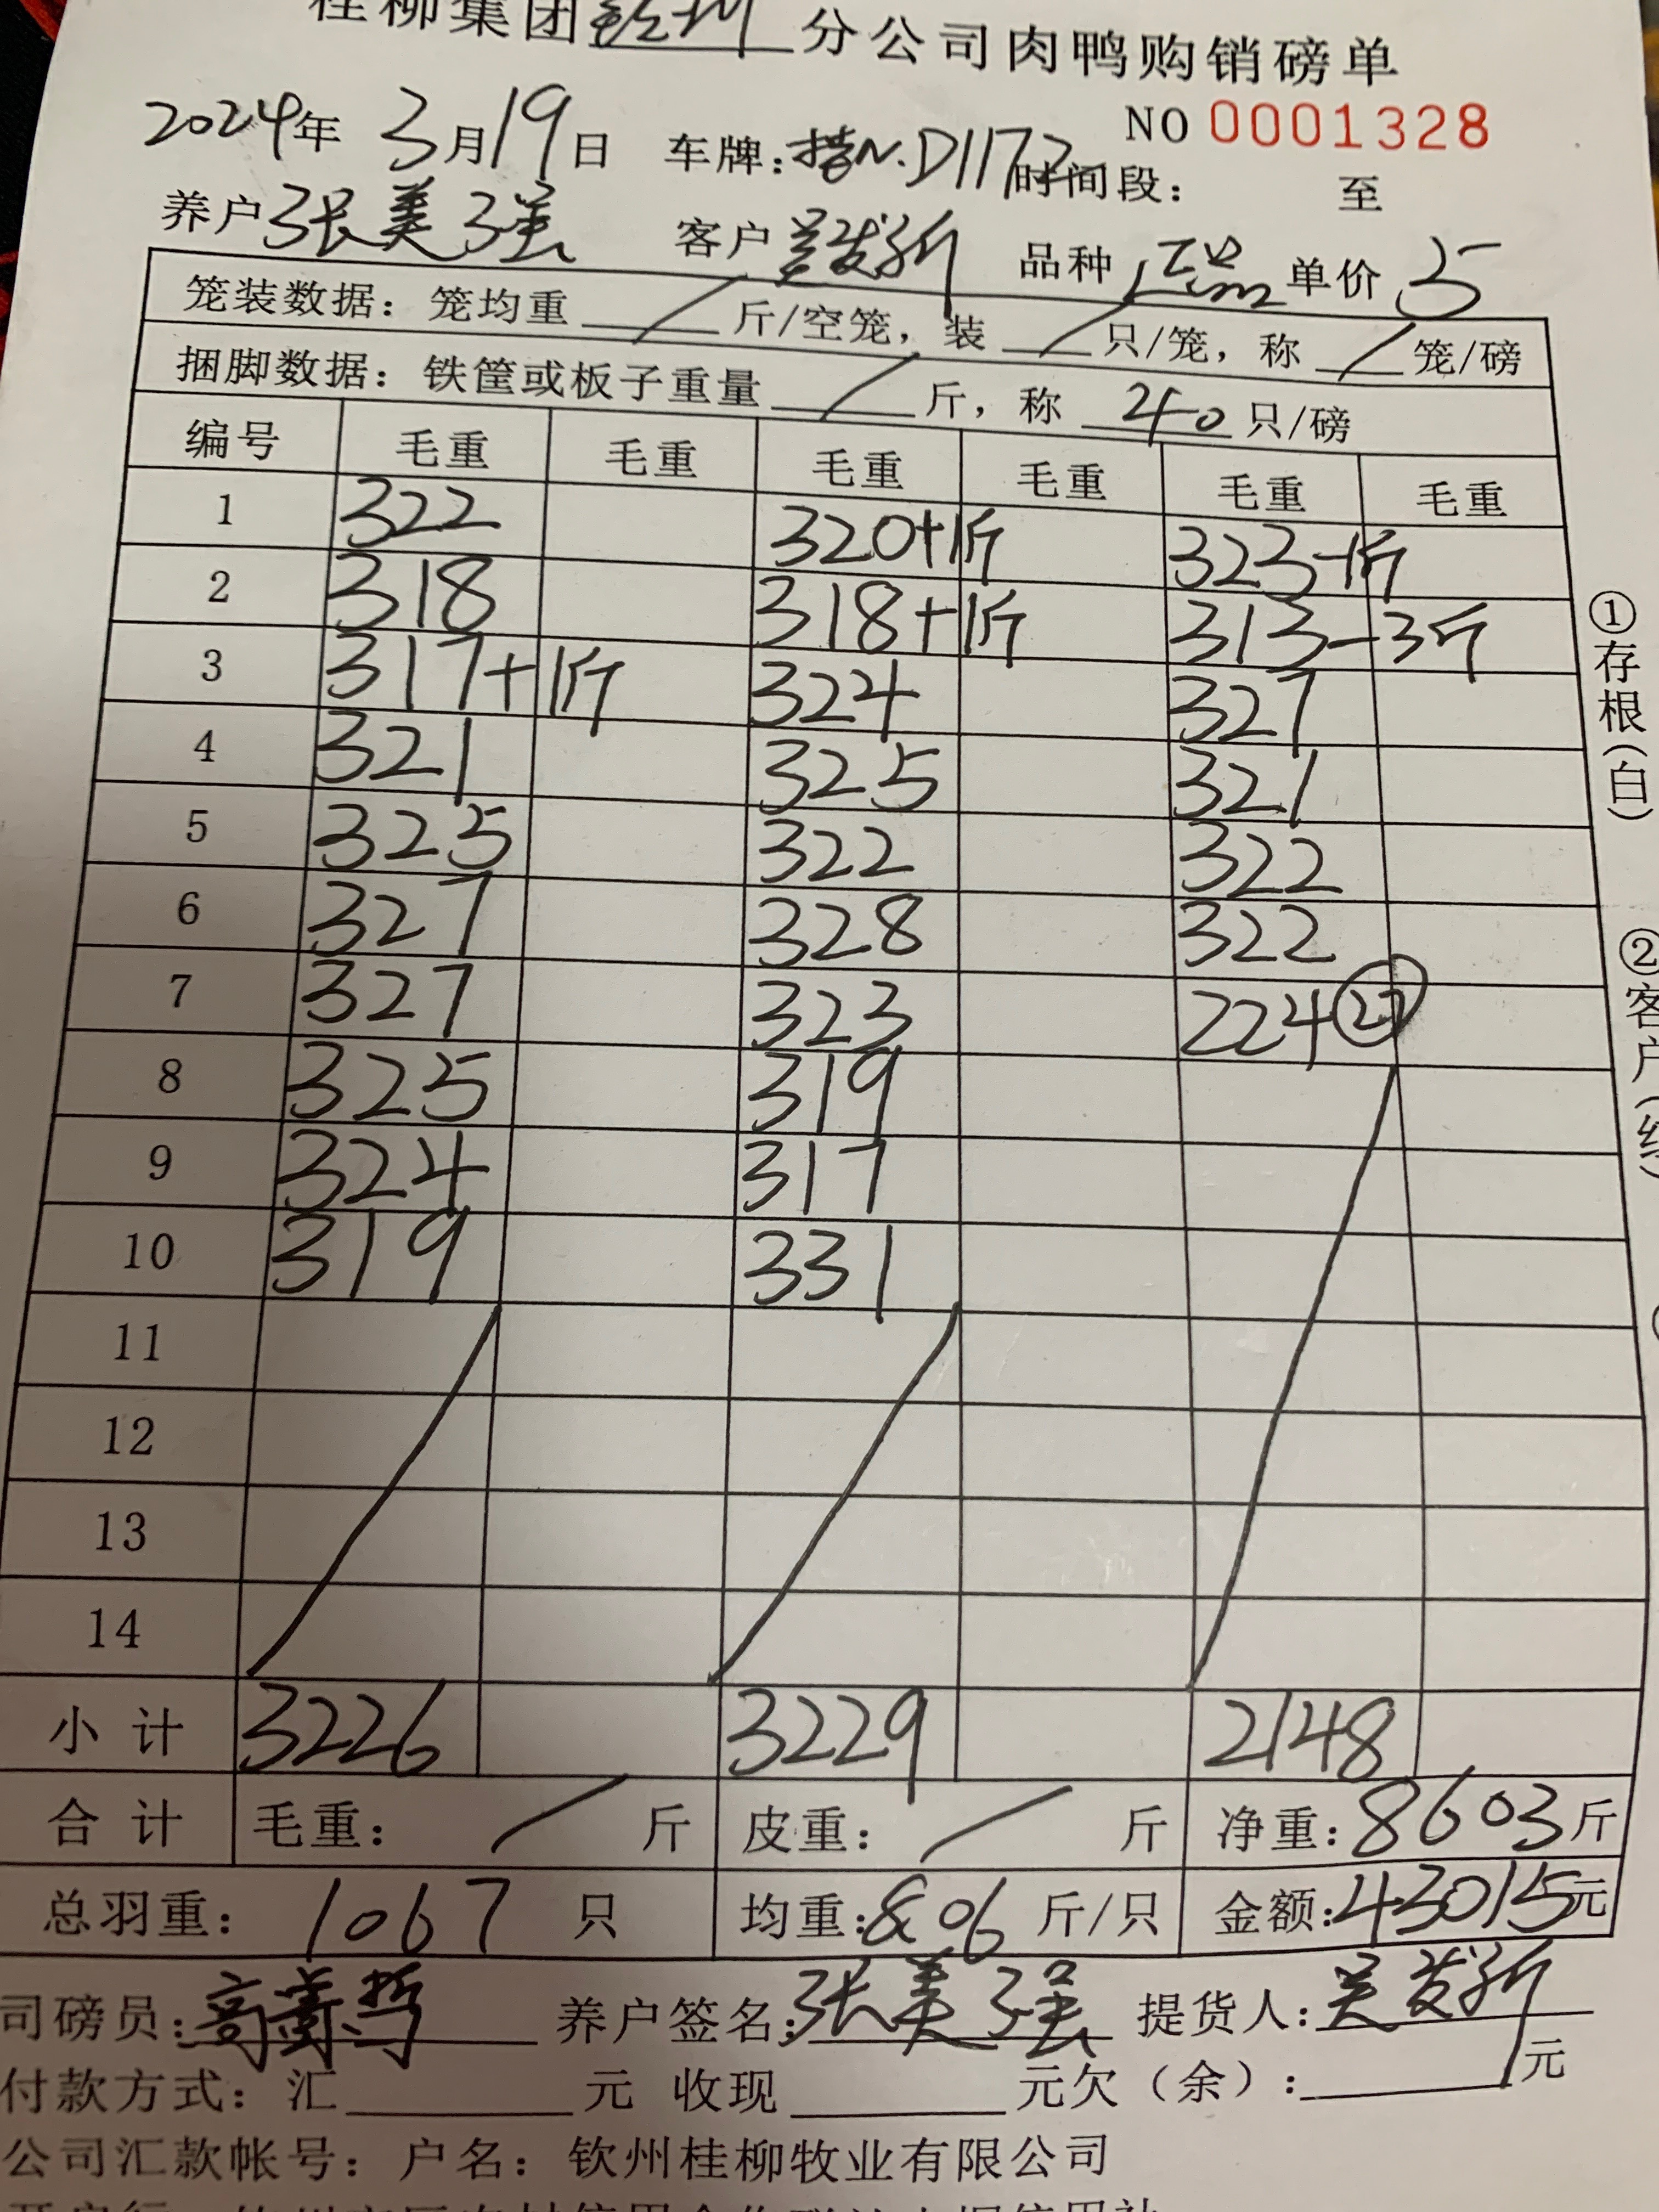 桂柳集团钦州分公司肉鸭购销磅单
NO 0001328
2024年 3月19日 车牌:桂N.D1172 时间段: 至
养户 张美强 客户 吴发新 品种 正品 单价 5
笼装数据: 笼均重 / 斤/空笼, 装 / 只/笼, 称 / 笼/磅
捆脚数据: 铁筐或板子重量 / 斤, 称 40 只/磅
编号 毛重 毛重 毛重 毛重 毛重 毛重
1 322 320+1斤 323-1斤
2 318 318+1斤 313-3斤
3 317+1斤 324 327
4 321 325 321
5 325 322 322
6 327 328 322
7 327 323 224 27
8 325 319
9 324 317
10 319 331
11
12
13
14
小计 3226 3229 2148
合计 毛重: / 斤 皮重: / 斤 净重: 8603斤
总羽重: 1067 只 均重: 8.06 斤/只 金额: 43015元
司磅员: 养户签名: 张美强 提货人: 吴发新
付款方式: 汇 元 收现 元欠(余): 元
公司汇款帐号: 户名: 钦州桂柳牧业有限公司
①存根(白)
②客户(红)